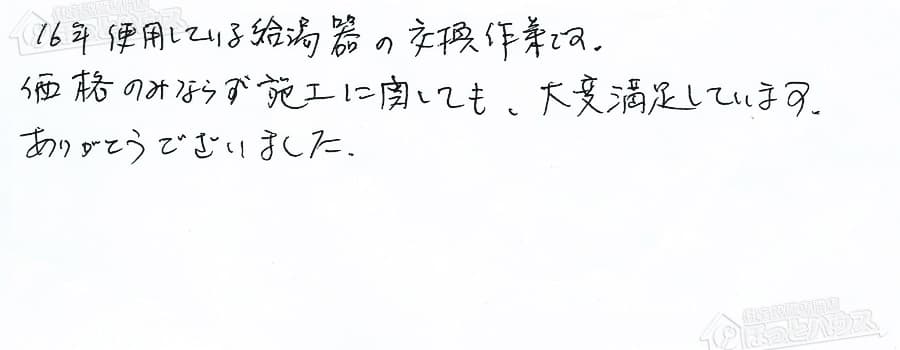 16年使用している給湯器の交換作業です.
価格のみならず施工に関しても、大変満足しています.
ありがとうございました.
ほっとハウス